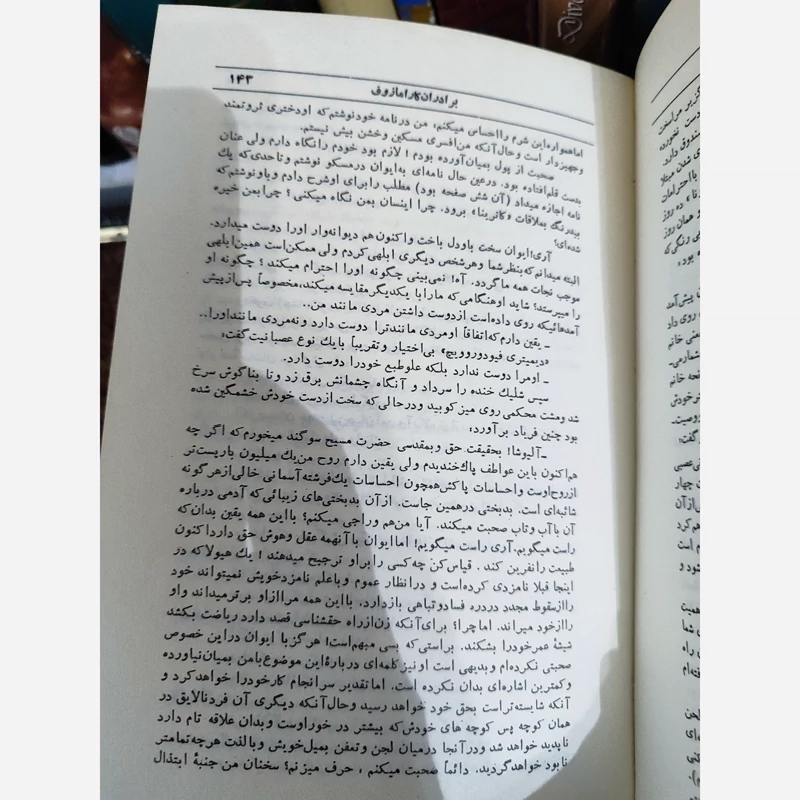 ۱۴۳
برادران کارامازوف
اما همواره این شرم را احساس میکنم، من در نامه خود نوشتم که او دختری ثروتمند
و جهیز دار است و حال آنکه من افسری مسکین و خشن بیش نیستم.
صحبت از پول بمیان آورده بودم! لازم بود خودم را نگاه دارم ولی عنان
بدست قلم افتاده بود. در عین حال نامه‌ای به ایوان در مسکو نوشتم و تا حدی که یک
نامه اجازه میداد (آن شش صفحه بود) مطلب را برای او شرح دادم و باو نوشتم که
بیدرنگ بملاقات «کاترینا» برود. چرا اینسان بمن نگاه میکنی؟ چرا بمن خیره
شده‌ای؟
آری! ایوان سخت باو دل باخت و اکنون هم دیوانه‌وار او را دوست میدارد.
البته میدانم که بنظر شما و هر شخص دیگری ابلهی کردم ولی ممکن است همین ابلهی
موجب نجات همه ما گردد. آه! نمی‌بینی چگونه او را احترام میکند؟ چگونه او
را میپرستد؟ شاید او هنگامی که ما را با یکدیگر مقایسه میکند، مخصوصاً پس از پیش
آمدهائیکه روی داده است از دوست داشتن مردی مانند من..
ـ یقین دارم که اتفاقاً او مردی مانند ترا دوست دارد و نه مردی مانند او را..
«دیمیتری فیودوروویچ» بی‌اختیار و تقریباً با یک نوع عصبانیت گفت:
ـ او مرا دوست ندارد بلکه علو طبع خود را دوست دارد.
سپس شلیک خنده را سر داد و آنگاه چشمانش برق زد و تا بناگوش سرخ
شد و مشت محکمی روی میز کوبید و در حالی که سخت از دست خودش خشمگین شده
بود چنین فریاد برآورد:
ـ آلیوشا! بحقیقت حق و بمقدسی حضرت مسیح سوگند میخورم که اگر چه
هم اکنون باین عواطف پاک خندیدم ولی یقین دارم روح من یک میلیون بار پست‌تر
از روح اوست و احساسات پاکش همچون احساسات یک فرشته آسمانی خالی از هر گونه
شائبه‌ای است. بدبختی در همین جاست. از آن بدبختی‌های زیبائی که آدمی درباره
آن با آب و تاب صحبت میکند. آیا من هم وراجی میکنم؟ با این همه یقین بدان که
راست میگویم. آری راست میگویم! اما ایوان با آنهمه عقل و هوش حق دارد اکنون
طبیعت را نفرین کند. قیاس کن چه کسی را بر او ترجیح میدهند! یک هیولا که در
اینجا قبلا نامزدی کرده است و در انظار عموم و با علم نامزد خویش نمیتواند خود
را از سقوط مجدد در دره فساد و تباهی باز دارد. با این همه مرا از او برتر میداند و او
را از خود میراند. اما چرا؟ برای آنکه زن از راه حقشناسی قصد دارد ریاضت بکشد
شیشهٔ عمر خود را بشکند. براستی که بسی مبهم است! هرگز با ایوان در این خصوص
صحبتی نکرده‌ام و بدیهی است او نیز کلمه‌ای دربارهٔ این موضوع با من بمیان نیاورده
و کمترین اشاره‌ای بدان نکرده است. اما تقدیر سرانجام کار خود را خواهد کرد و
آنکه شایسته‌تر است بحق خود خواهد رسید و حال آنکه دیگری آن فرد نالایق در
همان کوچه پس کوچه های خودش که بیشتر در خور اوست و بدان علاقه تام دارد
ناپدید خواهد شد و در آنجا در میان لجن و تعفن بمیل خویش و با لذت هر چه تمامتر
نابود خواهد گردید. دائماً صحبت میکنم، حرف میزنم؟ سخنان من جنبهٔ ابتذال